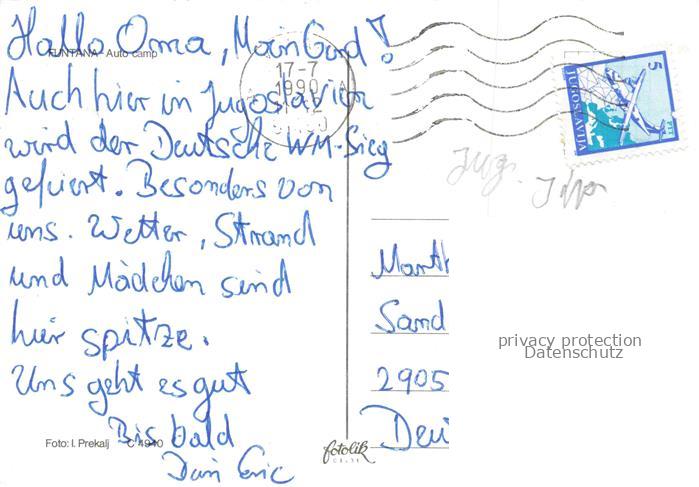 Hallo Oma, Moin Gerd!
FUNTANA - Auto camp
Auch hier in Jugoslavien
wird der Deutsche WM-Sieg
gefeiert. Besonders von
uns. Wetter, Strand
und Mädchen sind
hier spitze.
Uns geht es gut
Bis bald
Foto: I. Prekalj C 4940
17-7
1990
5
JUGOSLAVIJA
PTT
Jug.
Marth
Sand
2905
Deu
fotolik
privacy protection
Datenschutz